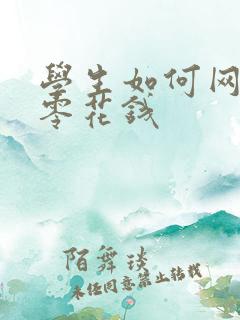 學生如何网
零花錢
陌舞琰
未经同意禁止转载